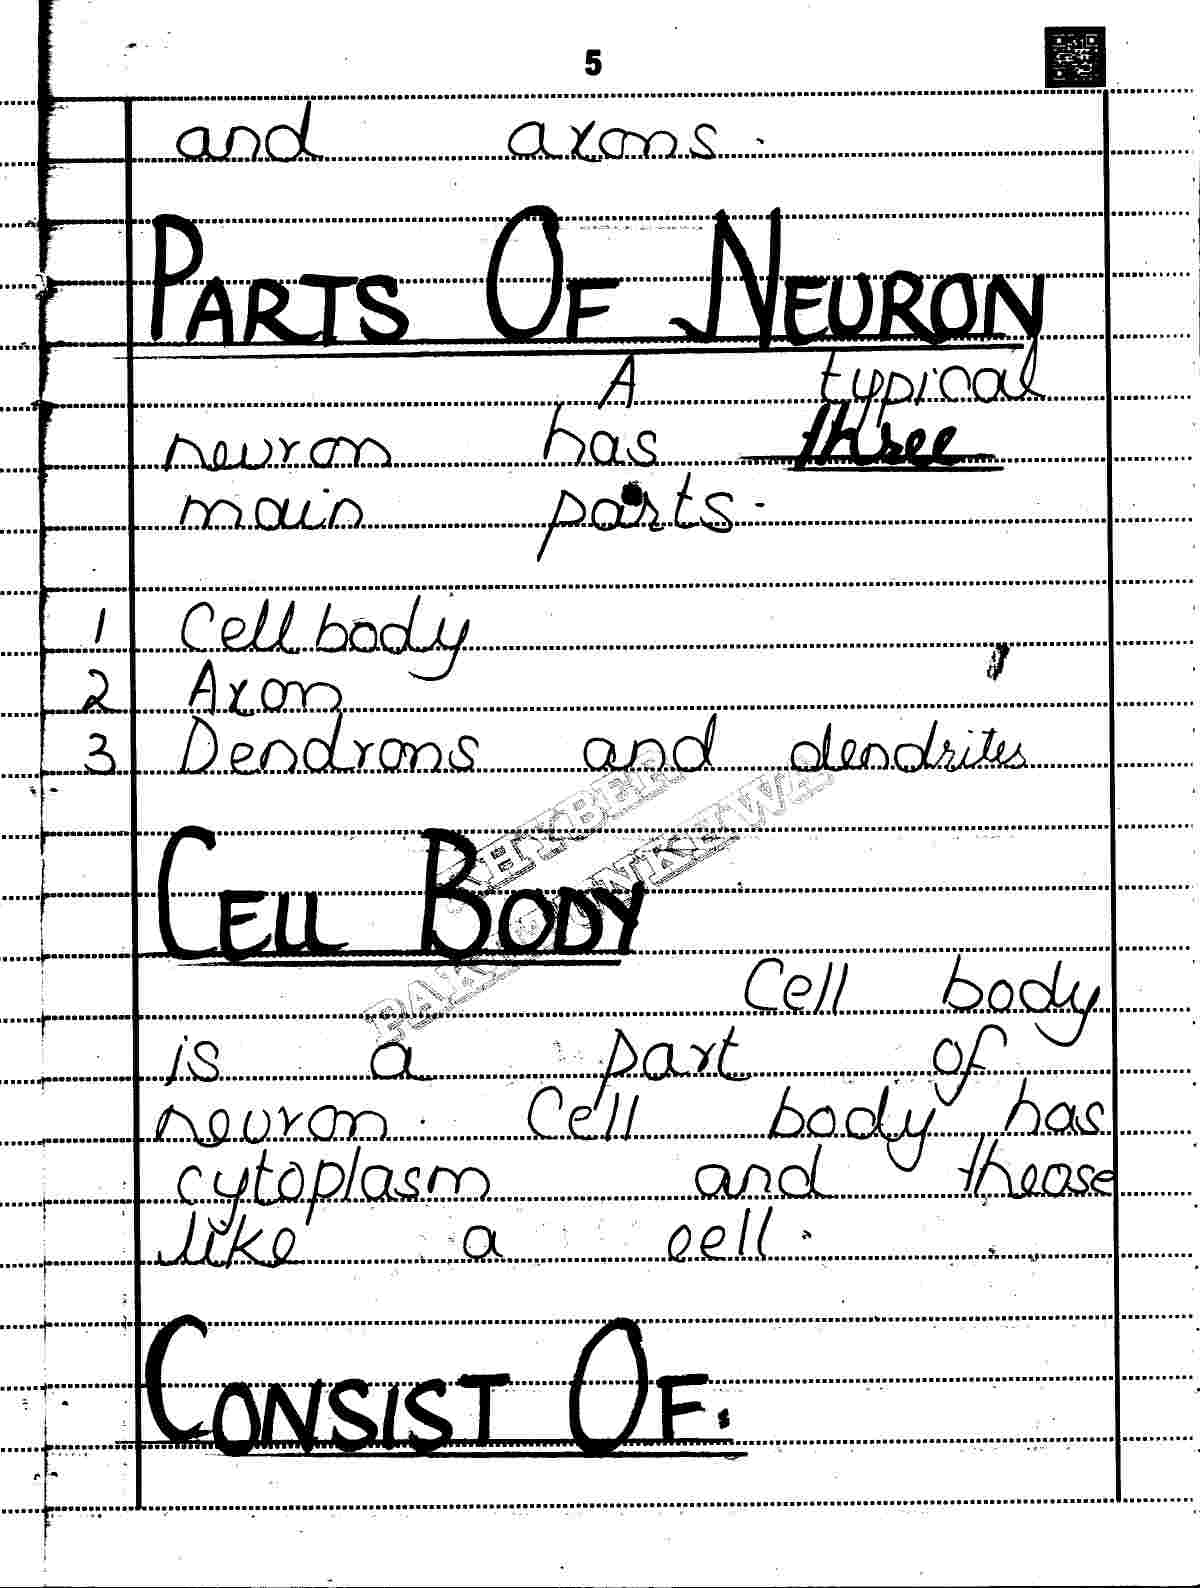 5
and axons.
PARTS OF NEURON
A typical
neuron has three
main parts.
1 Cell body
2 Axon
3 Dendrons and dendrites
KHYBER
PAKHTUNKHWA
CELL BODY
Cell body
is a part of
neuron. Cell body has
cytoplasm and thease
like a cell.
CONSIST OF: